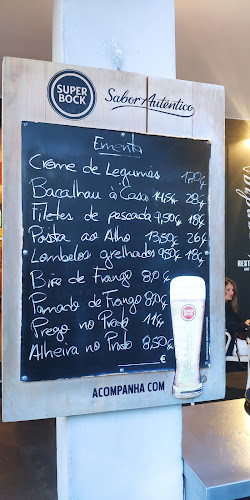 SUPER BOCK
Sabor Autêntico
Ementa
Creme de Legumes 1,70€
Bacalhau à Casa 14,5€ 28€
Filetes de pescada 9,50€ 18€
Pasta ao Alho 13,50€ 26€
Lombelos grelhados 9,50€ 18€
Bife de Frango 8,0€
Panado de Frango 8,0€
Prego no Prato 11€
Alheira no Prato 8,50€
€
SUPER BOCK
ACOMPANHA COM